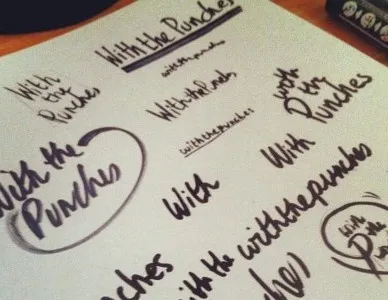 With the Punches
with the punches
With
the
Punches
With the Punches
with the punches
With
D the
Punches
With the
Punches
With
With
with the punches
with the
with
D the